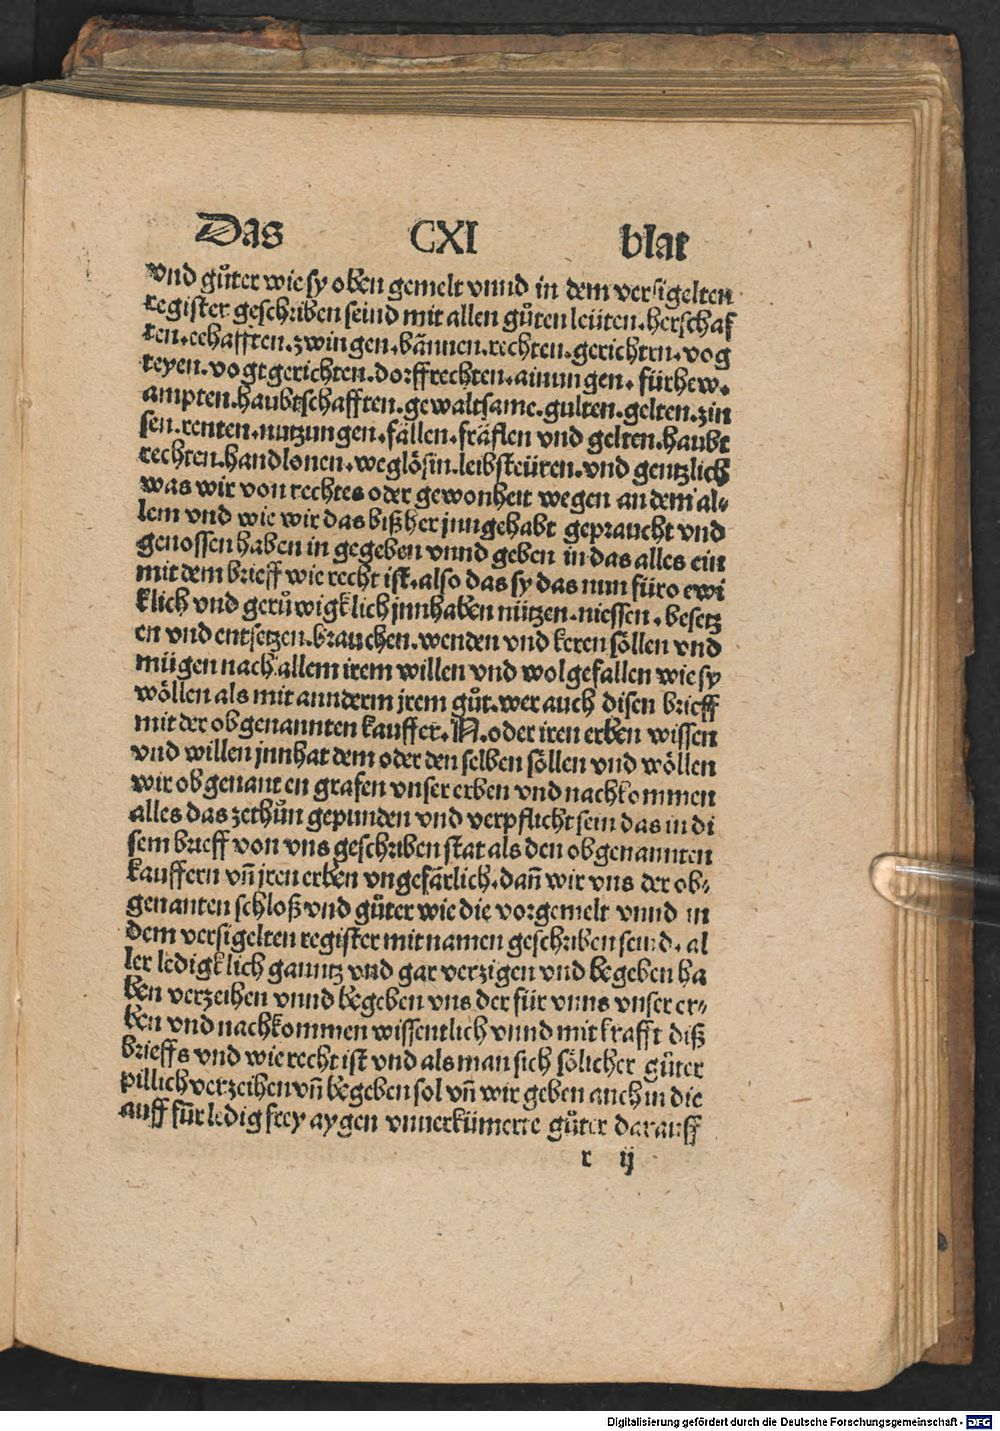 Das CXI blat
vnd gůter wie sy oben gemelt vnnd in dem versigelten
register geschriben seind mit allen gůten leüten. herschaf
ten. eehafften. zwingen. bännen. rechten. gerichten. vog
teyen. vogtgerichten. dorffrechten. ainungen. fürhew.
ampten. haubtschafften. gewaltsame. gulten. gelten. zin
sen. renten. nutzungen. fällen. fräflen vnd gelten. haubt
rechten. handlonen. weglösin. leibsteüren. vnd gentzlich
was wir von rechtes oder gewonheit wegen an dem al⸗
lem vnd wie wir das bißher jnngehabt gepraucht vnd
genossen haben in gegeben vnnd geben in das alles ein
mit dem brieff wie recht ist. also das sy das nun füro ewi
klich vnd gerůwigklich jnnhaben nützen. niessen. besetz
en vnd entsetzen. brauchen. wenden vnd keren söllen vnd
mügen nach allem irem willen vnd wolgefallen wie sy
wöllen als mit annderm jrem gůt. wer auch disen brieff
mit der obgenannten kauffer. N. oder iren erben wissen
vnd willen jnnhat dem oder den selben söllen vnd wöllen
wir obgenant en grafen vnser erben vnd nachkommen
alles das zethůn gepunden vnd verpflicht sein das in di
sem brieff von vns geschriben stat als den obgenannten
kauffern vñ jren erben vngefärlich. dañ wir vns der ob⸗
genanten schloß vnd gůter wie die vorgemelt vnnd in
dem versigelten register mit namen geschriben seind. al
ler ledigklich ganntz vnd gar verzigen vnd begeben ha
ben verzeihen vnnd begeben vns der für vnns vnser er⸗
ben vnd nachkommen wissentlich vnnd mit krafft diß
brieffs vnd wie recht ist vnd als man sich sölicher gůter
pillich verzeihen vñ begeben sol vñ wir geben auch in die
auff für ledig frey aygen vnuerkümerte gůter darauff
r ij
Digitalisierung gefördert durch die Deutsche Forschungsgemeinschaft - DFG